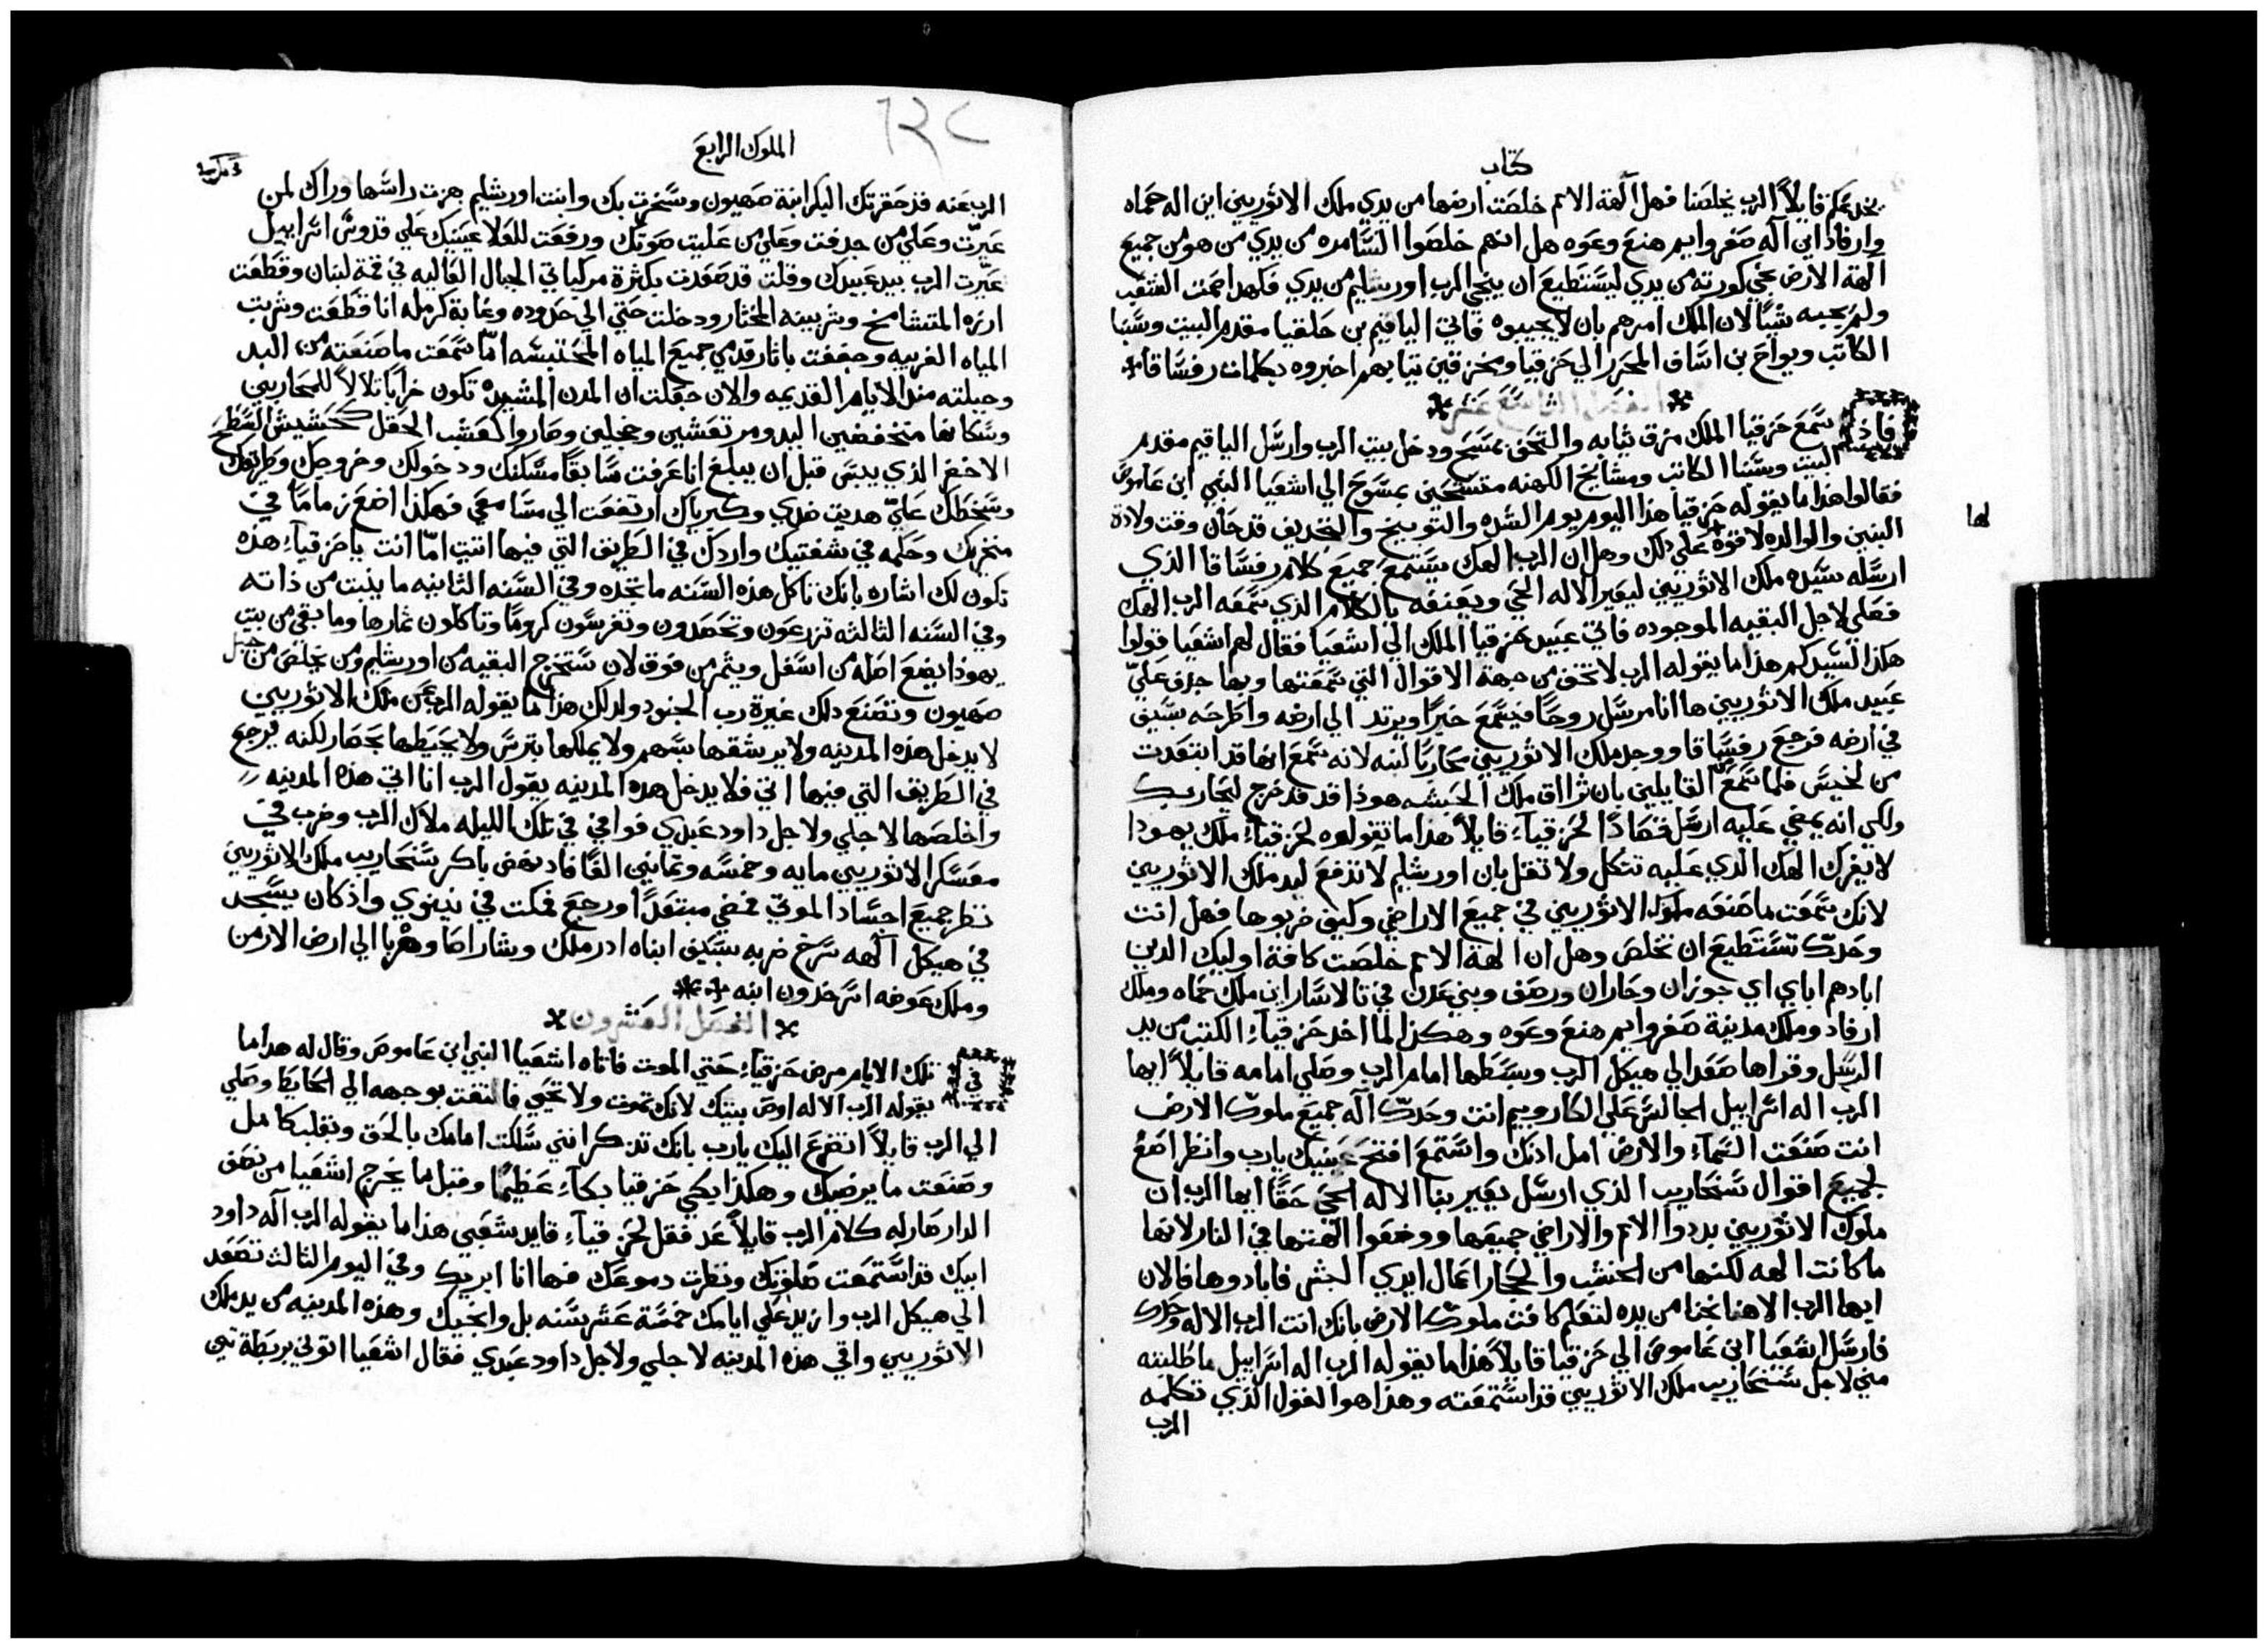 كتاب
يخدعكم قايلاً الرب يخلصنا فهل آلهة الامم خلصت ارضها من يدي ملك الاثوريين اين اله حماه
وارفاد اين آله صفروايم هنع وعوه هل انهم خلصوا السامره من يدي من هو من جميع
آلهة الارض نجي كورته من يدي ليستطيع ان ينجي الرب اورشليم من يدي فلهدا صمت الشعب
ولم يجيبه شياً لان الملك امرهم بان لا يجيبوه فاتي الياقيم بن حلقيا مقدم البيت وسبنا
الكاتب ويواح بن اساف المحرر الي حزقيا ومخزقين تيابهم اخبروه بكلمات رفساقا
الفصل التاسع عشر
فاذ سمع حزقيا الملك مزق ثيابه والتحف بمسح ودخل بيت الرب وارسل الياقيم مقدم
البيت وسبنا الكاتب ومشايخ الكهنه متسحين بمسوح الي اشعيا النبي ابن عاموص
فقالوا هذا ما يقوله حزقيا هذا اليوم يوم الشده والتوبيخ والتجديف قد حان وقت ولادة
البنين والوالده لا قوة لها علي ذلك وهل ان الرب الهك يستمع جميع كلام رفساقا الذي
ارسله سيده ملك الاثوريين ليعير الاله الحي ويعنفه بالكلام الذي سمعه الرب الهك
فصلي لاجل البقيه الموجوده فاتي عبيد حزقيا الملك الي اشعيا فقال لهم اشعيا قولوا
هكذا لسيدكم هذا ما يقوله الرب لا تخف من جهة الاقوال التي سمعتها وبها جدف عليّ
عبيد ملك الاثوريين ها انا مرسل روحاً فيسمع خبراً ويرتد الي ارضه واطرحه بسيف
في ارضه فرجع رفساقا ووجد ملك الاثوريين محارباً لبنه لانه سمع انه قد ابتعدت
من لخيس فلما سمع من القايلين بان ثراق ملك الحبشه هوذا قد خرج ليحاربك
ولكي انه يمضي عليه ارسل قصاداً لحزقيآء قايلاً هذا ما تقولوه لحزقيآء ملك يهودا
لا يغرك الهك الذي عليه تتكل ولا تقل بان اورشليم لا تدفع ليد ملك الاثوريين
لانك سمعت ما صنعه ملوك الاثوريين في جميع الاراضي وكيف خربوها فهل انت
وحدك تستطيع ان تخلص وهل ان الهة الامم خلصت كافة اوليك الدين
ابادهم اباي اي جوزان وحاران ورصف وبني عدن في تالاسار اين ملك حماه وملك
ارفاد وملك مدينة صفروايم هنع وعوه وهكذا لما اخد حزقيآء الكتب من يد
الرسل وقراها صعد الي هيكل الرب وبسطها امام الرب وصلي امامه قايلاً ايها
الرب اله اسراييل الجالس علي الكاروبيم انت وحدك آله جميع ملوك الارض
انت صنعت السمآء والارض امل اذنك واستمع افتح عينيك يارب وانظر اصغ
لجميع اقوال سنحاريب الذي ارسل يعير بنا الاله الحي حقاً ايها الرب ان
ملوك الاثوريين بددوا الامم والاراضي جميعها ووضعوا الهتها في النار لانها
ما كانت الهه لكنها من الخشب والحجار اعمال ايدي البشر فابادوها فالان
ايها الرب الاهنا نجنا من يده لتعلم كافت ملوك الارض بانك انت الرب الاله وحدك
فارسل اشعيا ابن عاموص الي حزقيا قايلاً هذا ما يقوله الرب اله اسراييل ما طلبته
مني لاجل سنحاريب ملك الاثوريين قد استمعته وهذا هو القول الذي تكلمه
الرب
لها
الملوك الرابع
الرب عنه قد حقرتك البكر ابنة صهيون وسخرت بك وابنت اورشليم هزت راسها وراك لمن
عيرت وعلي من جدفت وعلي من عليت صوتك ورفعت للعلا عينيك علي قدوس اسراييل
عيّرت الرب بيد عبيدك وقلت قد صعدت بكثرة مركباتي الجبال العاليه في قمة لبنان وقطعت
ارزه المتشامخ وشربينه المختار ودخلت حتي الي حدوده وغابة كرمله انا قطعت وشربت
المياه الغريبه وجففت باثار قدمي جميع المياه المحتبسه امّا سمعت ما صنعته من البد
وجبلته مند الايام القديمه والان جعلت ان المدن المشيده تكون خراباً تلالاً للمحاربين
وسكانها منخفضين اليد ومرتعشين وخجلين وصاروا كعشب الحقل كحشيش السطح
الاخضر الذي يبس قبل ان يبلغ انا عرفت سابقاً مسكنك ودخولك وخروجك وطريقك
وسخطك عليّ هديت ضدي وكبرياك ارتفعت الي مسامعي فهكذا اضع زماماً في
منخريك وحكمه في شفتيك واردك في الطريق التي فيها اتيت امّا انت ياحزقيآء هذه
تكون لك اشاره بانك تاكل هذه السنه ما تجده وفي السنه الثانيه ما ينبت من ذاته
وفي السنه الثالثه تزرعون وتحصدون وتغرسون كروماً وتاكلون ثمارها وما بقي من بيت
يهودا يضع اصله من اسفل ويثمر من فوق لان ستخرج البقيه من اورشليم ومن يخلص من جبل
صهيون وتصنع دلك غيرة رب الجنود ولدلك هذا ما يقوله الرب عن ملك الاثوريين
لا يدخل هذه المدينه ولا يرشقها بسهم ولا يملكها بترس ولا يحيطها بحصار لكنه يرجع
في الطريق التي فيها اتي فلا يدخل هده المدينه يقول الرب انا اقي هذه المدينه
واخلصها لاجلي ولاجل داود عبدي فوافي في تلك الليله ملاك الرب وضرب في
معسكر الاثوريين مايه وخمسه وتمانين الفاً فاد نهض باكر سنحاريب ملك الاثوريين
نظر جميع اجساد الموتي فمضي مبتعداً ورجع فمكت في نينوي واذ كان يسجد
في هيكل آلهه نسرخ ضربه بسيف ابناه ادرملك وشاراصا وهربا الي ارض الارمن
وملك عوضه اسرحدون ابنه
الفصل العشرون
في تلك الايام مرض حزقيآء حتي الموت فاتاه اشعيا النبي ابن عاموص وقال له هدا ما
يقوله الرب الاله اوص بيتك لانك تموت ولا تحيي فالتفت بوجهه الي الحايط وصلي
الي الرب قايلاً اتضرع اليك يارب بانك تذكر انني سلكت امامك بالحق وبقلب كامل
وصنعت ما يرضيك وهكذا بكي حزقيا بكآء عظيماً وقبل ما يخرج اشعيا من نصف
الدار صار له كلام الرب قايلاً عد فقل لحزقيآء قايد شعبي هذا ما يقوله الرب آله داود
ابيك قد استمعت صلوتك ونظرت دموعك فها انا ابريك وفي اليوم الثالث تصعد
الي هيكل الرب وازيد علي ايامك خمسة عشر سنه بل وانجيك وهذه المدينه من يد ملك
الاثوريين واقي هذه المدينه لاجلي ولاجل داود عبدي فقال اشعيا اتوني بربطة تين